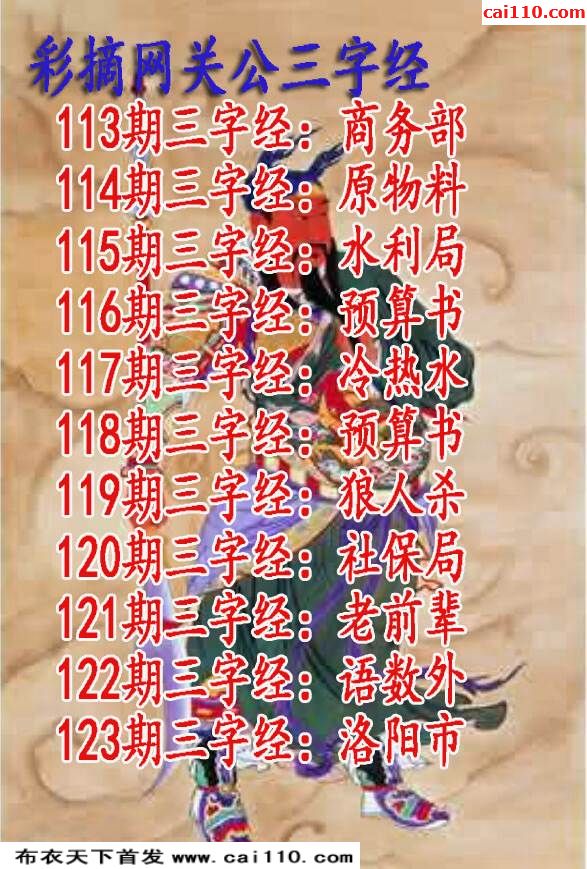 cai110.com
彩摘网关公三字经
113期三字经：商务部
114期三字经：原物料
115期三字经：水利局
116期三字经：预算书
117期三字经：冷热水
118期三字经：预算书
119期三字经：狼人杀
120期三字经：社保局
121期三字经：老前辈
122期三字经：语数外
123期三字经：洛阳市
布衣天下首发 www.cai110.com